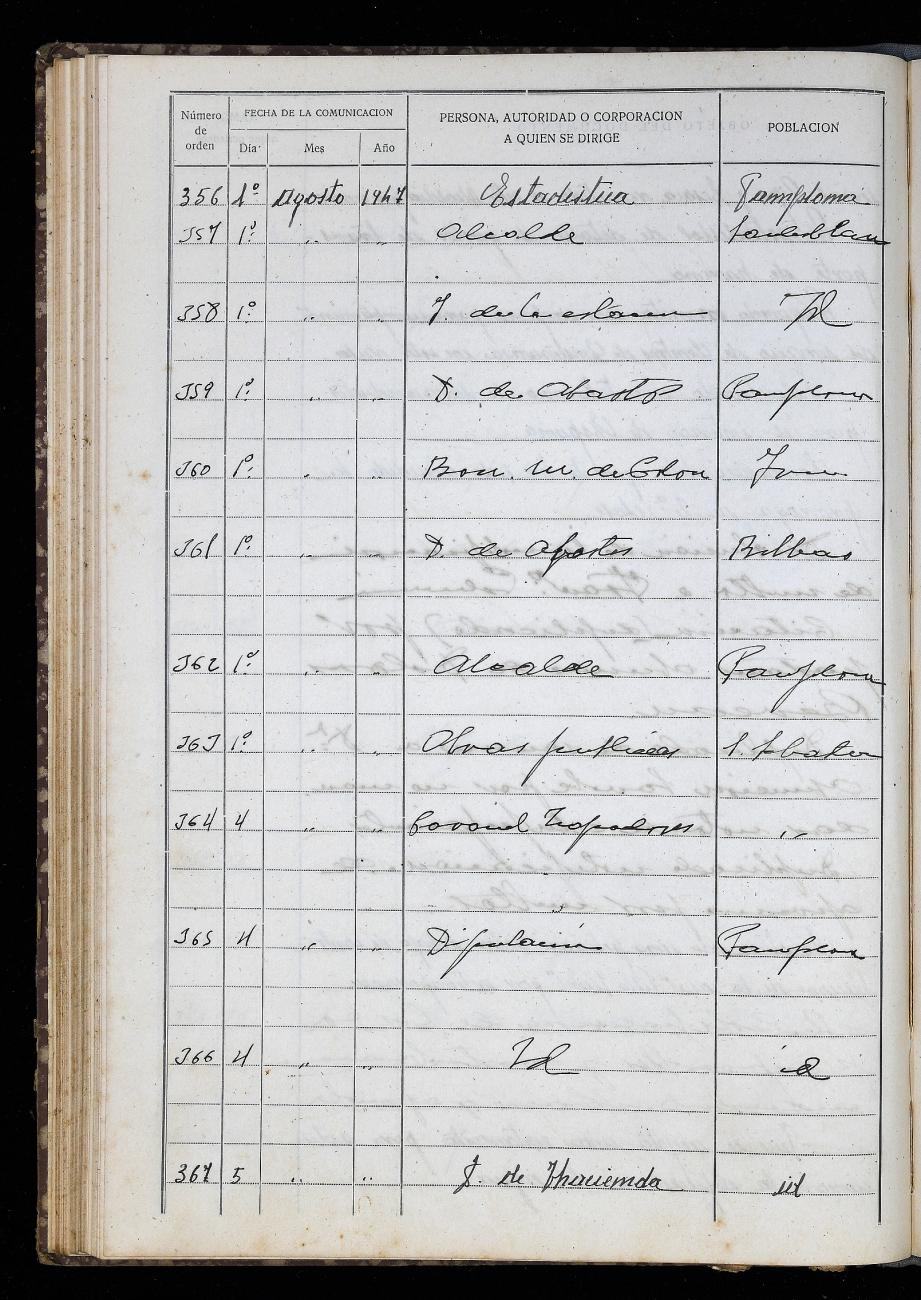 Número de orden FECHA DE LA COMUNICACION PERSONA, AUTORIDAD O CORPORACION A QUIEN SE DIRIGE POBLACION
Día Mes Año
356 1º Agosto 1947 Estadistica Pamplona
357 1º " " Alcalde
358 1º " " J. de la estacion Id
359 1º " " D. de Abastos Pamplona
360 1º " " Bon. M. de Irun
361 1º " " D. de Abastos Bilbao
362 1º " " Alcalde Pamplona
363 1º " " Obras publicas
364 4 " " Coronel Zapadores "
365 4 " " Diputacion Pamplona
366 4 " " Id id
367 5 " " J. de Hacienda id